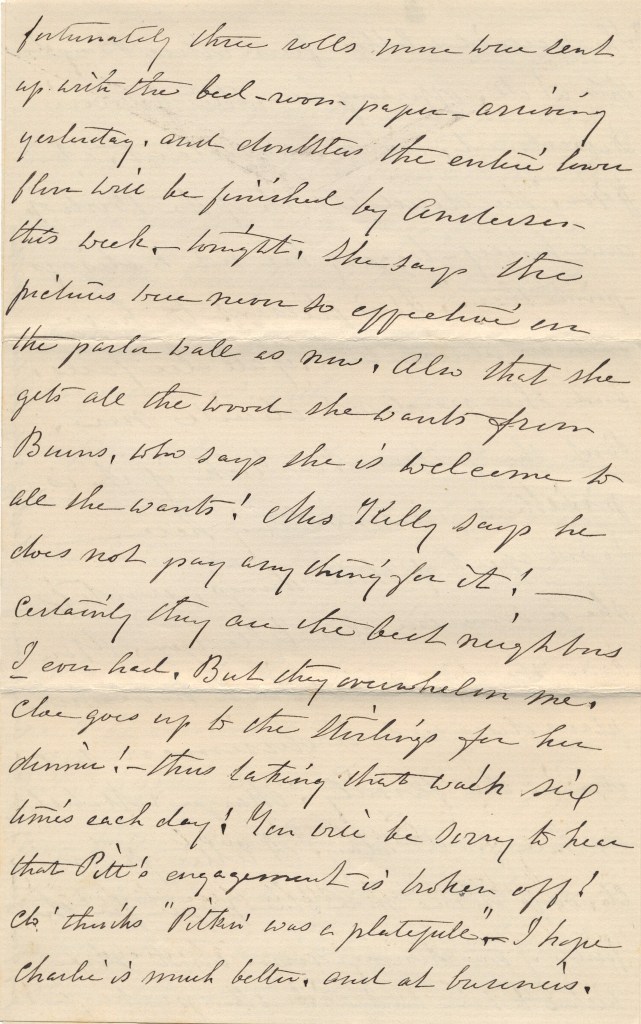 fortunately three rolls more were sent
up with the bed-room paper - arriving
yesterday. and doubtless the entire lower
floor will be finished by Anderson
this week. - tonight. She says the
pictures were never so effective on
the parlor wall as now. Also that she
gets all the wood she wants from
Burns, who says she is welcome to
all she wants! Mrs Kelly says he
does not pay any thing for it! -
Certainly they are the best neighbors
I ever had. But they overwhelm me.
Cloe goes up to the Stirlings for her
dinner! - thus taking that walk six
times each day! You will be sorry to hear
that Pitt's engagement is broken off!
Clo' thinks "Pitkin was a plateful" - I hope
Charlie is much better. and at business.